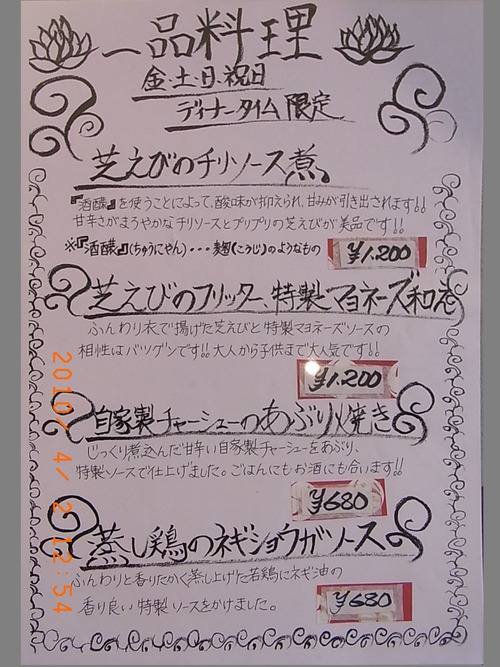 一品料理
金・土・日・祝日
ディナータイム限定
芝えびのチリソース煮
『酒醸』を使うことによって、酸味が抑えられ、甘みが引き出されます!!
甘辛さがまろやかなチリソースとプリプリの芝えびが美品です!!
※『酒醸』(ちゅうにゃん)・・・麹(こうじ)のようなもの
¥1.200
芝えびのフリッター、特製マヨネーズ和え
ふんわり衣で揚げた芝えびと特製マヨネーズソースの
相性はバツグンです!!大人から子供まで大人気です!!
¥1.200
自家製チャーシューのあぶり焼き
じっくり煮込んだ甘辛い自家製チャーシューをあぶり、
特製ソースで仕上げました。ごはんにもお酒にも合います!!
¥680
蒸し鶏のネギショウガソース
ふんわりと香りたかく蒸し上げた若鶏にネギ油の
香り良い特製ソースをかけました。
¥680
2010/ 4/ 2 12:54